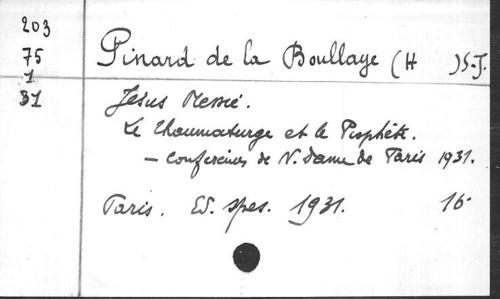 203
75
1
31
Pinard de la Boullaye (H )S.J.
Jésus Messie.
Le Thaumaturge et le Prophète.
— Conférences de N. Dame de Paris 1931.
Paris. Ed. Spes. 1931. 16·